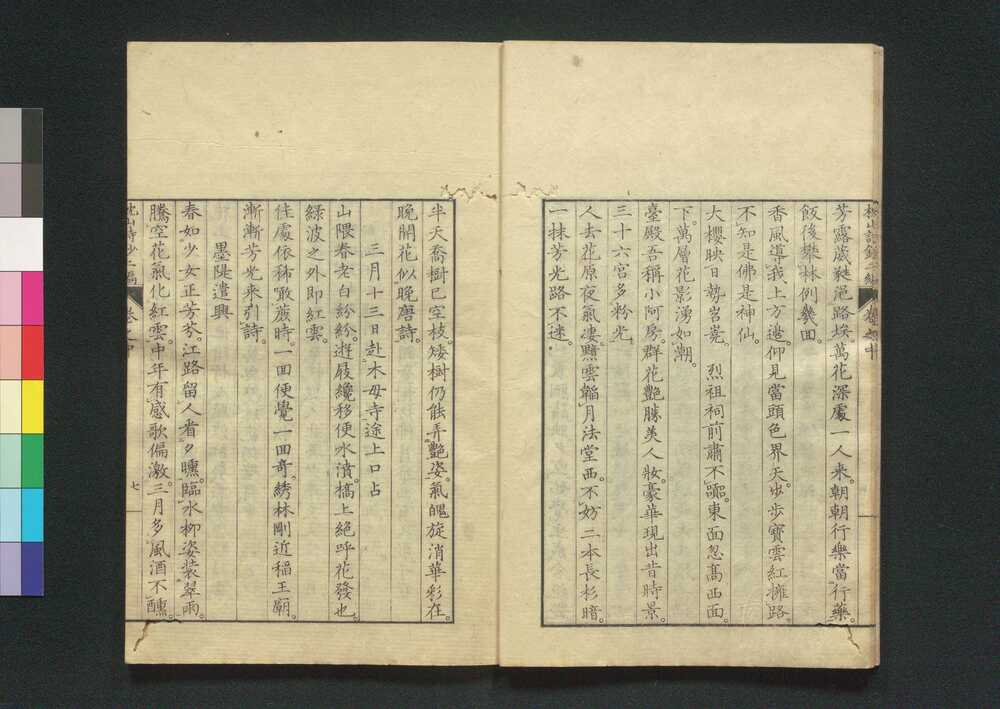 芳露葳蕤浥路埃萬花深處一人来朝朝行樂當行藥。
飯後櫱林例幾回。
香風導我上方遊。仰見當頭色界天。步步寶雲紅擁路
不知是佛是神仙。
大櫻映日勢岧嶤。烈祖祠前肅不囂。東面忽高西面
下。萬層花影湧如潮。
臺殿吾稱小阿房。群花艷勝美人妝。豪華現出昔時景。
三十六宮多粉光。
人去花原夜氣凄。黯雲韜月法堂西。不妨二本長杉暗。
一抹芳光路不迷。
半天喬樹已空枝。矮樹仍能弄艷姿。氣魄旋消華彩在。
晚開花似晚唐詩。
三月十三日赴木母寺途上口占
山隈春老白紛紛。遊屐纔移便水濆。橋上絕呼花發也。
綠波之外即紅雲。
佳處依稀噉蔗時。一回便覺一回奇。綉林剛近稲王廟。
漸漸芳光来引詩。
墨陡遣興
春如少女正芳芬。江路留人省夕曛。臨水柳姿装翠雨。
騰空花氣化紅雲。中年有感歌偏激。三月多風酒不醺。
枕山詩鈔 卷之中
七